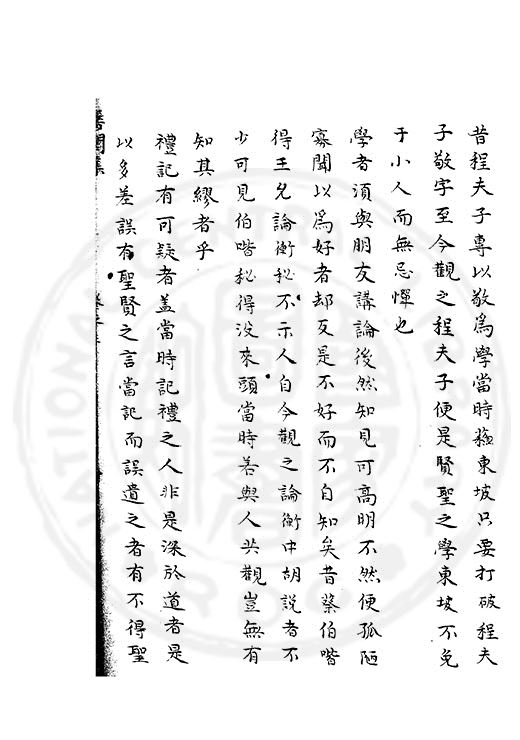 昔程夫子專以敬為學當時蘓東坡只要打破程夫
子敬字至今觀之程夫子便是賢聖之學東坡不免
于小人而無忌憚也
學者須與朋友講論後然知見可高明不然便孤陋
寡聞以爲好者却反是不好而不自知矣昔蔡伯喈
得王充論衡秘不示人自今觀之論衡中胡説者不
少可見伯喈秘得没來頭當時若與人共觀豈無有
知其繆者乎
禮記有可疑者盖當時記禮之人非是深於道者是
以多差誤有聖賢之言當記而誤遺之者有不得聖